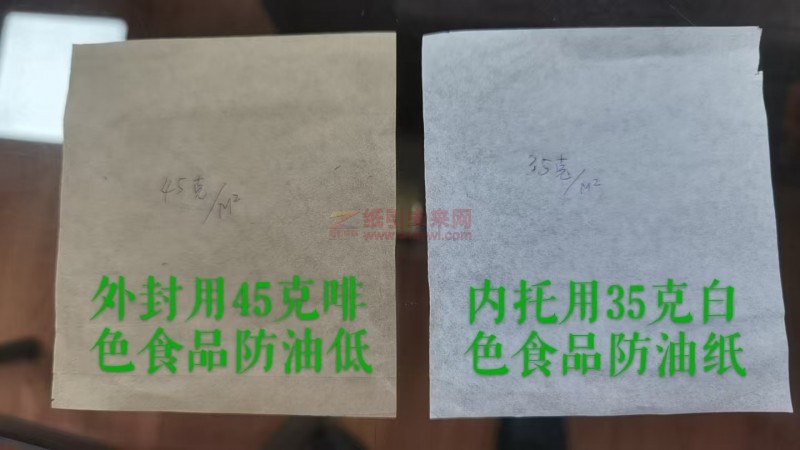 45克/M²
35克/M²
外封用45克啡
色食品防油低
内托用35克白
色食品防油纸